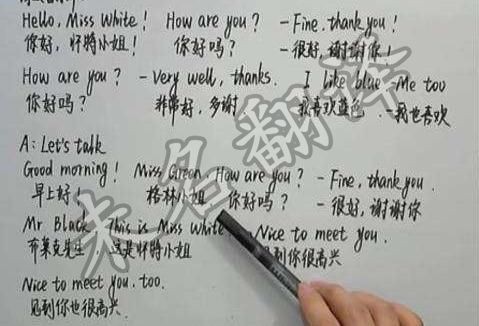 Hello, Miss White! How are you? - Fine, thank you!
你好,怀特小姐! 你好吗? - 很好,谢谢你!
How are you? - Very well, thanks. I like blue - Me too
你好吗? 非常好,多谢. 我喜欢蓝色 - 我也喜欢
A: Let's talk
Good morning! Miss Green, How are you? - Fine, thank you.
早上好! 格林小姐 你好吗? - 很好,谢谢你
Mr Black, This is Miss White. Nice to meet you.
布莱克先生,这是怀特小姐 见到你很高兴
Nice to meet you, too.
见到你也很高兴.
未名翻译